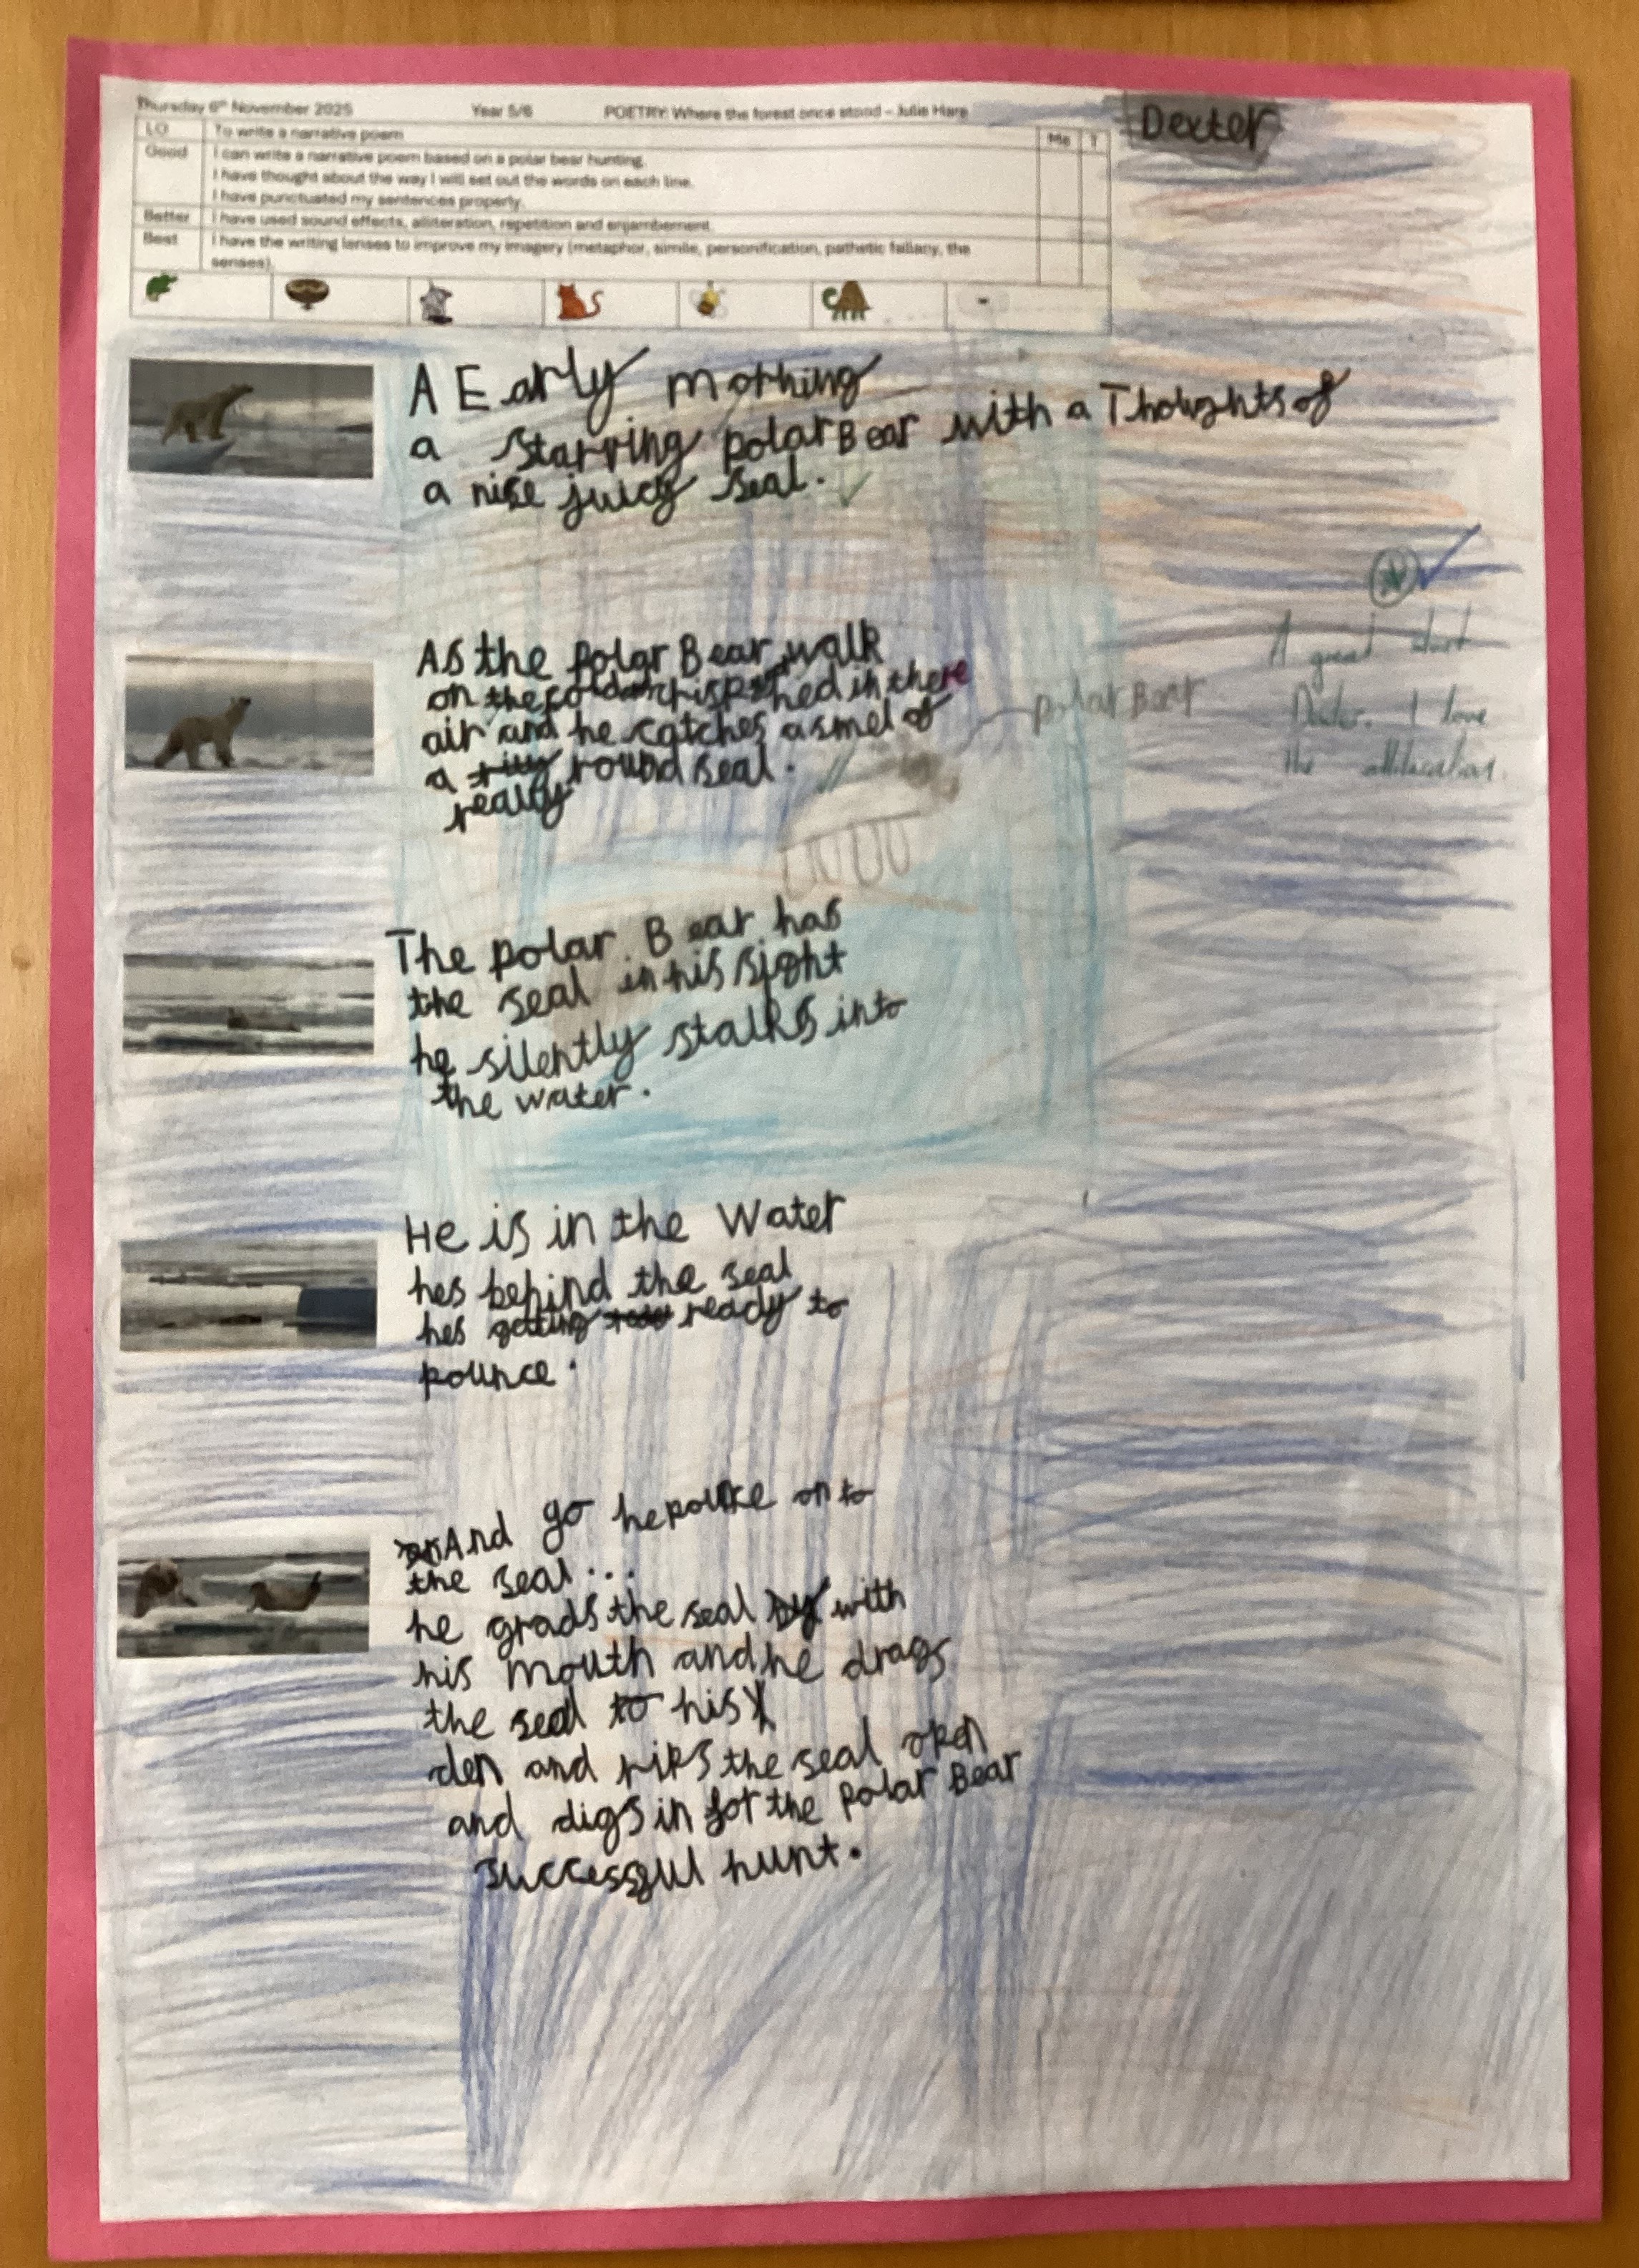 Thursday 6th November 2025 Year 5/6 POETRY: Where the forest once stood – Julie Hare
Dexter
LO To write a narrative poem Me T
Good I can write a narrative poem based on a polar bear hunting.
I have thought about the way I will set out the words on each line.
I have punctuated my sentences properly.
Better I have used sound effects, alliteration, repetition and enjambement.
Best I have the writing lenses to improve my imagery (metaphor, simile, personification, pathetic fallacy, the
senses).
A Early morning
a starving polar Bear with a Thoughts of
a nise juicy seal.
As the Polar Bear walk
on the cold in there
air and he catches a smel of
a round seal.
really
Polar Bear
A great start
Dexter. I love
the alliteration.
The polar Bear has
the seal in his sight
he silently stalks into
the water.
He is in the Water
hes behind the seal
hes getting ready to
pounce.
And go he pounce on to
the seal...
he grads the seal with
his mouth and he drags
the seal to his
den and rips the seal open
and digs in for the Polar Bear
successful hunt.